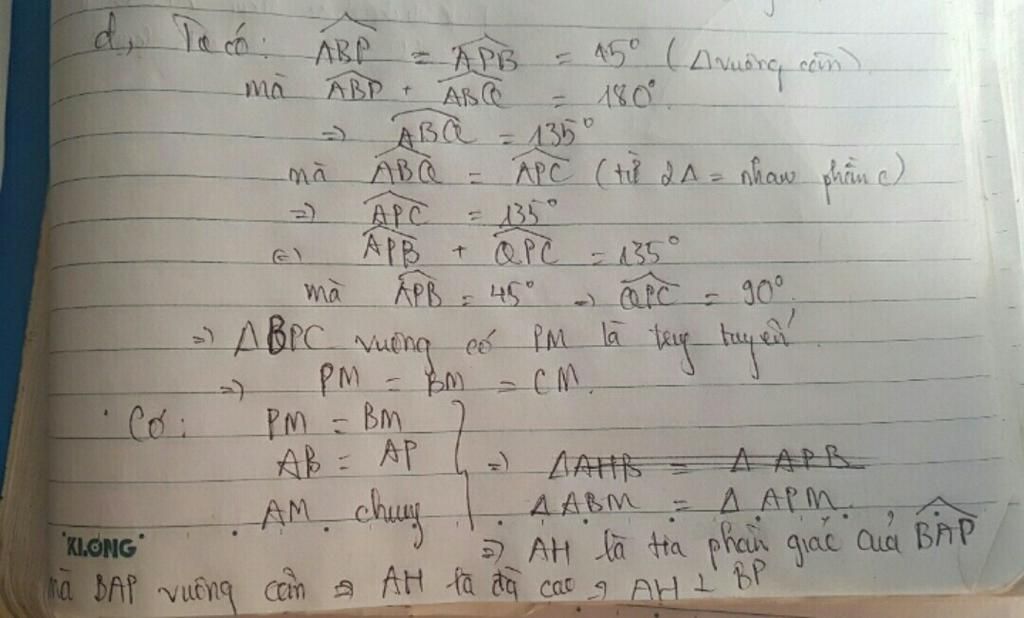 d, Ta có: ABP = APB = 45° (Δ vuông cân)
mà ABP + ABQ = 180°
=> ABQ = 135°
mà ABQ = APC (từ 2Δ = nhau phần c)
=> APC = 135°
(=) APB + QPC = 135°
mà APB = 45° => QPC = 90°
=> ΔBPC vuông có PM là tuyến
=> PM = BM = CM.
Có: PM = BM
AB = AP => ΔAHB = ΔAPB
AM chung ΔABM = ΔAPM.
KLONG => AH là tia phân giác của BAP
mà BAP vuông cân => AH là đg cao => AH ⊥ BP